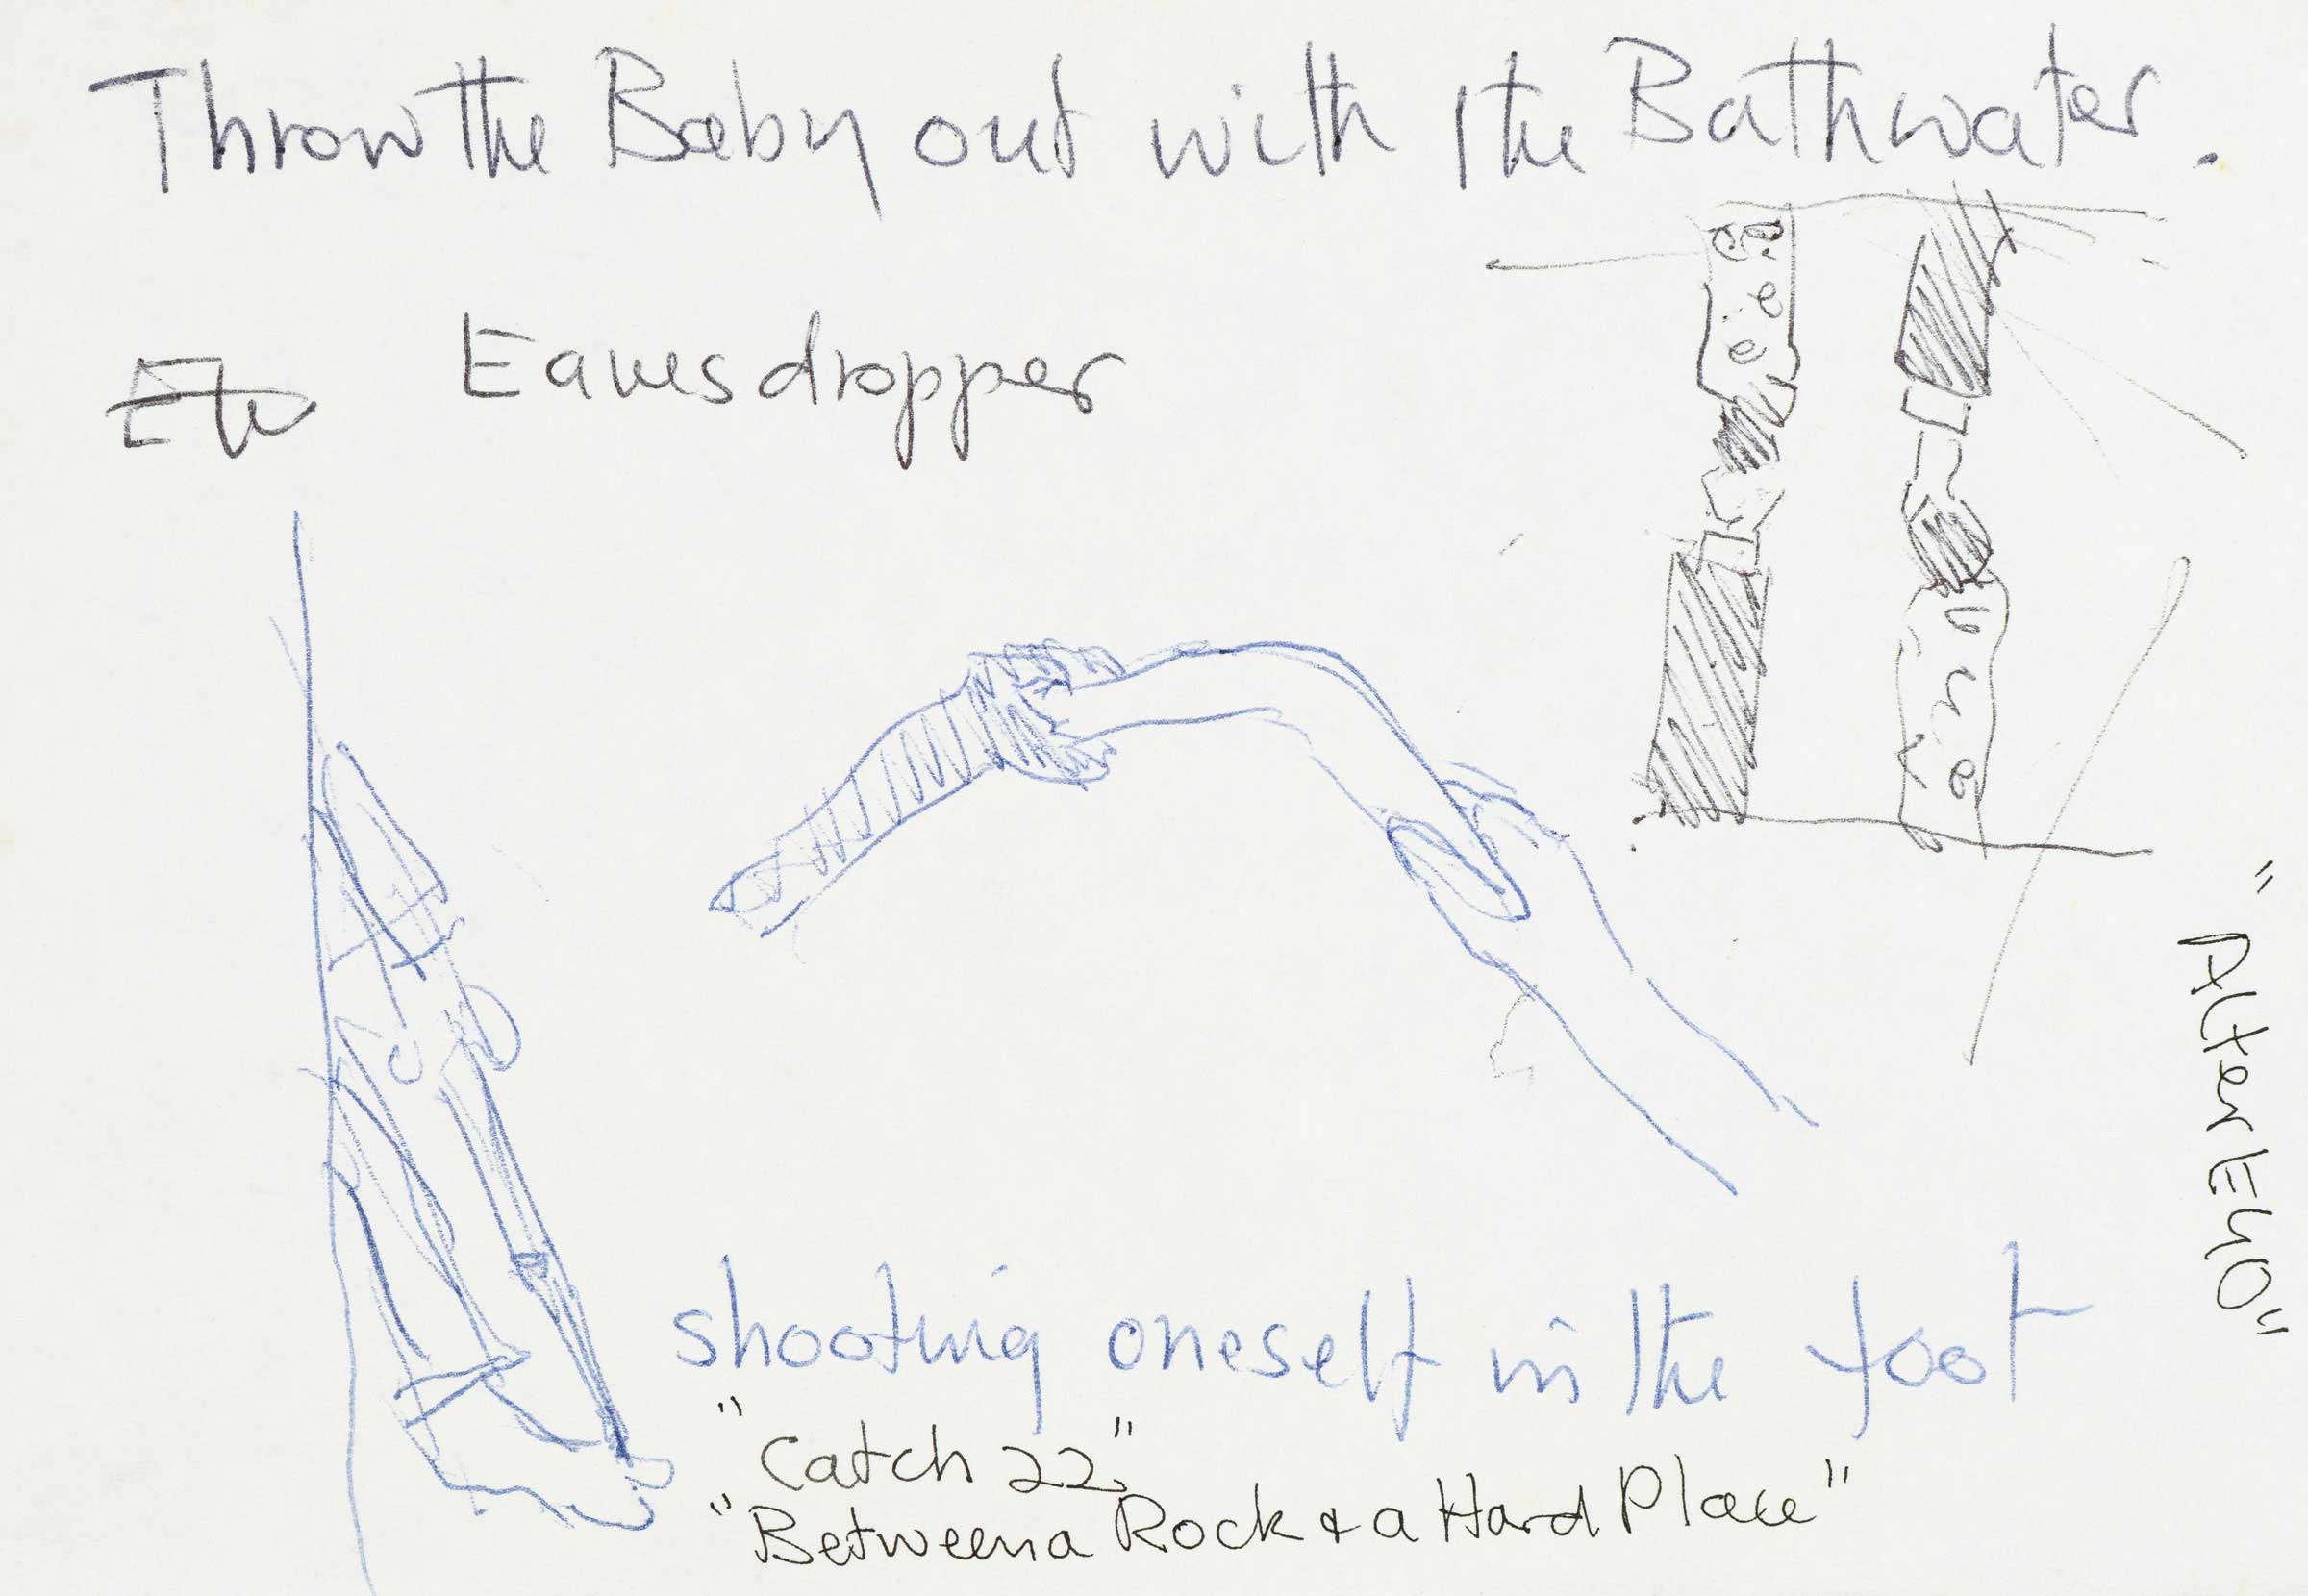 Throw the Baby out with the Bathwater.
Eavesdropper
shooting oneself in the foot
"Catch 22"
"Between a Rock & a Hard Place"